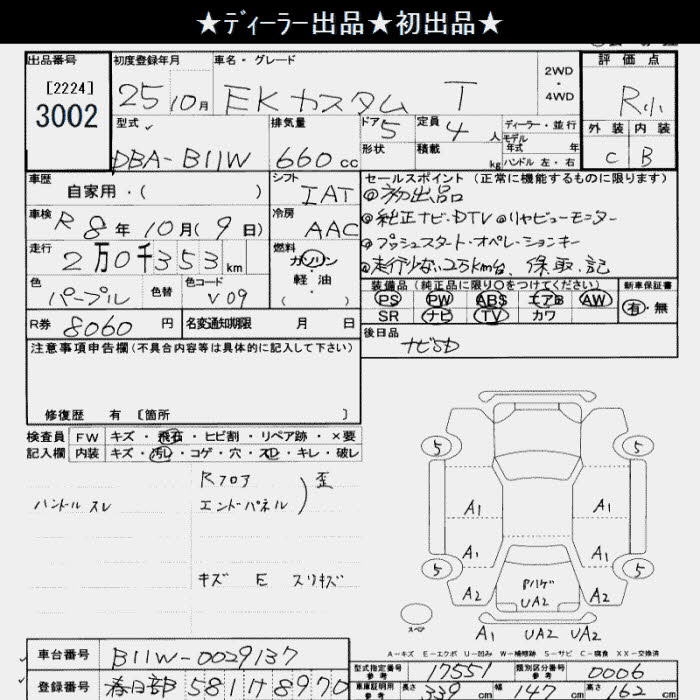 ★ディーラー出品★初出品★
出品番号 初度登録年月 車名・グレード 2WD・4WD 評価点
[2224] 3002 25 10月 EKカスタム T R小
型式 排気量 ドア 5 定員 4人 ディーラー・並行 外装 内装
DBA-B11W 660cc 形状 積載 kg モデル年式 年 ハンドル 左・右 C B
車歴 自家用・( ) シフト IAT セールスポイント (正常に機能するものに限ります)
◎初出品
車検 R8年10月(9日) 冷房 AAC ◎純正ナビ・DTV◎リヤビューモニター
◎プッシュスタート・オペレーションキー
走行 2万0千353km 燃料 ガソリン・軽油・( ) ◎走行少ない2万km台、保、取、記
色 パープル 色替 色コード V09 装備品 (純正品に限り○をつけてください) 新車保証書
PS PW ABS エアB AW 有・無
SR ナビ TV カワ
R券 8060円 名変通知期限 月 日 後日品
ナビSD
注意事項申告欄 (不具合内容等は具体的に記入して下さい)
修復歴 有 [箇所 ]
検査員 FW キズ・飛石・ヒビ割・リペア跡・×要
記入欄 内装 キズ・汚レ・コゲ・穴・スレ・キレ・破レ
Rフロア
エンドパネル ) 歪
ハンドル スレ
キズ E スリキズ
5 5
A1 A1
A1 A1
5 5
A2 Pハゲ UA2 A2
スペア A1 UA2 UA2
A-キズ E-エクボ U-凹み W-補修跡 S-サビ C-腐食 XX-交換済
車台番号 B11W-0029137
型式指定番号 参考 17551 類別区分番号 参考 0006
登録番号 春日部 581け8970
車庫証明用 参考 長さ 339cm 幅 147cm 高さ 162cm